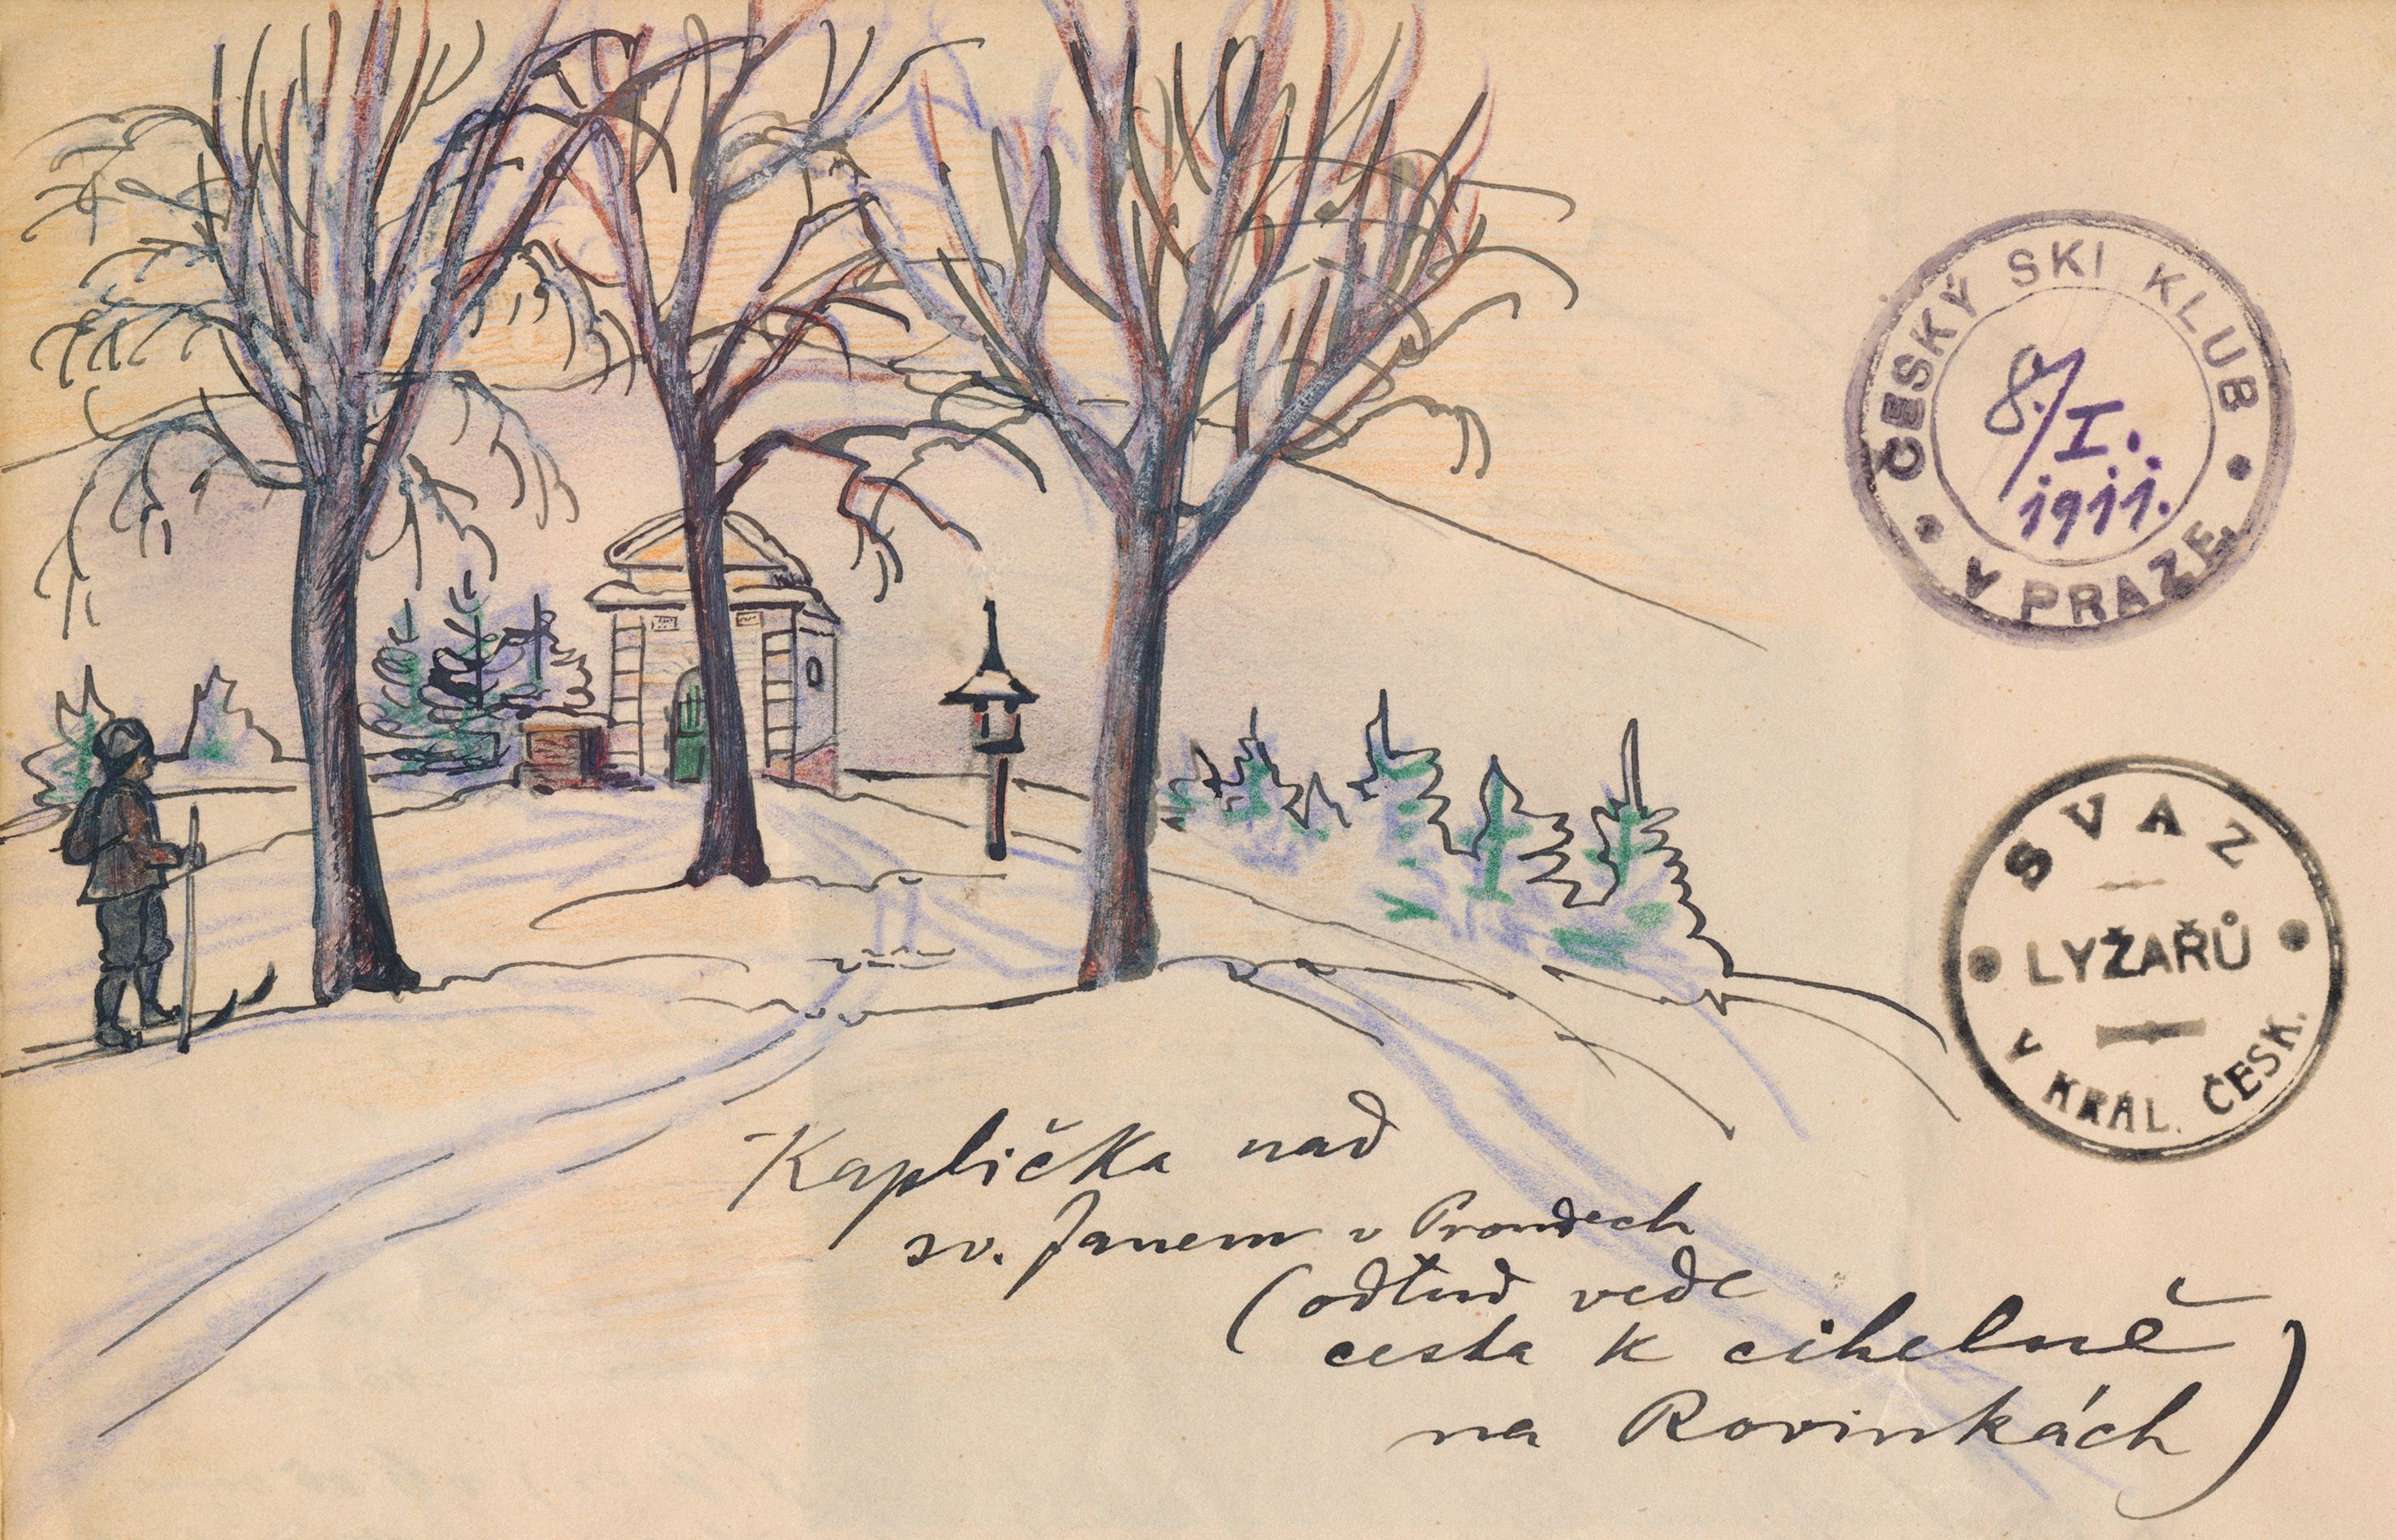 ČESKÝ SKI KLUB
8./I.
1911.
V PRAZE
SVAZ
LYŽAŘŮ
V KRÁL. ČESK.
Kaplička nad
sv. Janem v Proudech
(odtud vede
cesta k cihelně
na Rovinkách)